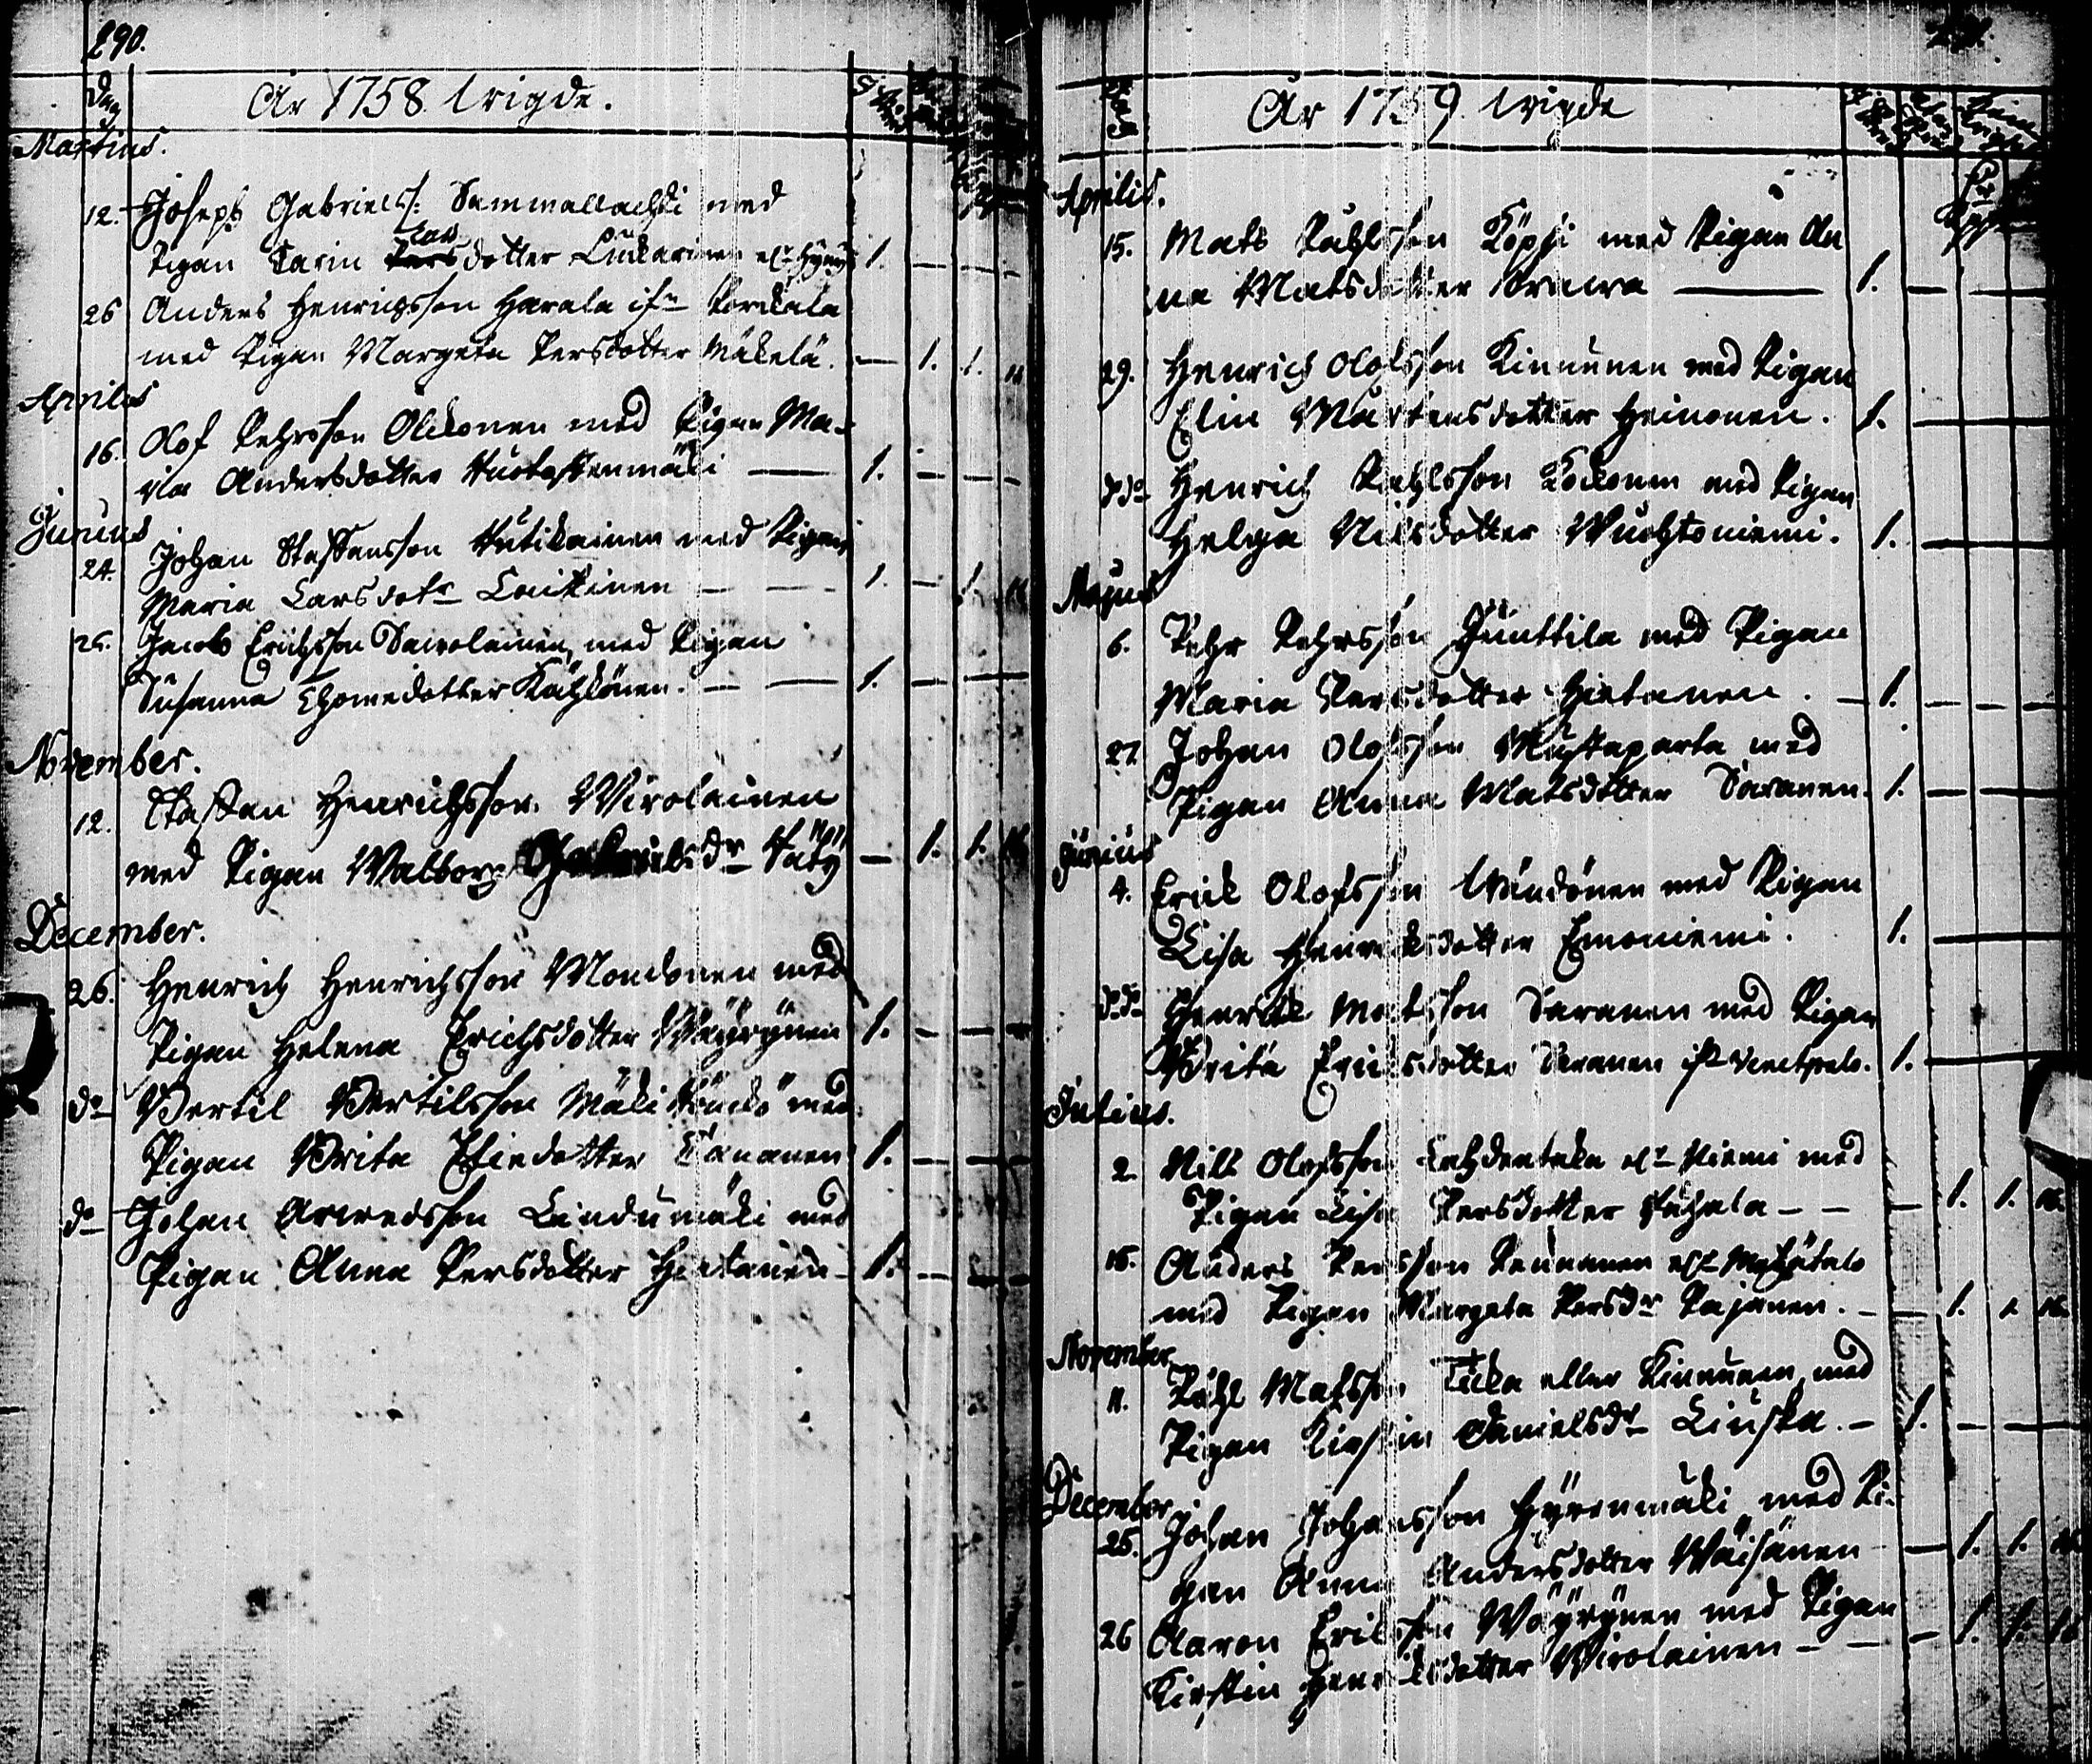 290.
Dag
År 1758 wigde.
Martius.
12. Joseph Gabrielss: Sammallachti med
Lars
Pigan Carin Persdotter Luckarinen 1. — — —
26 Anders Henrichsson Harala ifn Korckala
med Pigan Margeta Persdotter Mäkelä. — 1. 1.
Aprilis
16. Olof Pehrsson Olckonen med Pigan Ma-
ria Andersdotter Huotastenmäki — 1. — — —
Junius
24. Johan Staffansson Hutikainen med Pigan
Maria Larsdotr Laitinen — — 1. — 1.
25. Jacob Erichsson Sawolainen, med Pigan
Susanna Thomedotter Kähkönen. — — 1. — —
November.
12. Staffan Henrichsson Wirolainen
med Pigan Walborg Gabrielsdr Häty — 1. 1. 16
December.
26. Henrich Henrichsson Mondonen med
Pigan Helena Erichsdotter Wäyrynen 1. — — —
do Bertil Bertilsson Mäki med
Pigan Brita Eliedotter Tananen 1. — — —
do Johan Arwedsson Lindumäki med
Pigan Anna Persdotter Hietanen — 1. — — —
Dag
År 1759. wigde
Aprilis.
15. Mats Påhlsson Köpsi med Pigan An
na Matsdotter — 1. — — —
29. Henrich Olofsson Kinnunen med Pigan
Elin Mårtensdotter Heinonen. 1. — — —
do do Henrich Påhlsson Kockonen med Pigan
Helga Nilsdotter Wuohtoniemi. 1. — — —
Majus
6. Pehr Pehrsson Junttila med Pigan
Maria Persdotter Hietanen. — 1. — — —
27. Johan Olofsson Mustaparta med
Pigan Anna Matsdotter Saranen. 1. — — —
Junius
4. Erick Olofsson Wändönen med Pigan
Lisa Henricksdotter Emoniemi. 1. — — —
do do Henrick Matsson Saranen med Pigan
Brita Ericksdotter Saranen 1. — — —
Julius.
2. Nils Olofsson Lahdentaka elr Niemi med
Pigan Lisa Persdotter Puhala — — — 1. 1. 16.
15. Anders Persson Pennanen
med Pigan Margeta Persdr Pajanen. — — 1. 1. 16.
November
11. Påhl Matsson Ticka eller Kinnunen, med
Pigan Kirstin Danielsdr Liuska. — 1. — — —
December
25. Johan Johansson Hyrynmäki med Pi-
gan Anna Andersdotter Wäisänen — 1. 1. 16.
26 Aaron Ericsson Wäyrynen med Pigan
Kirstin Henricksdotter Wirolainen — — — 1. 1. 16